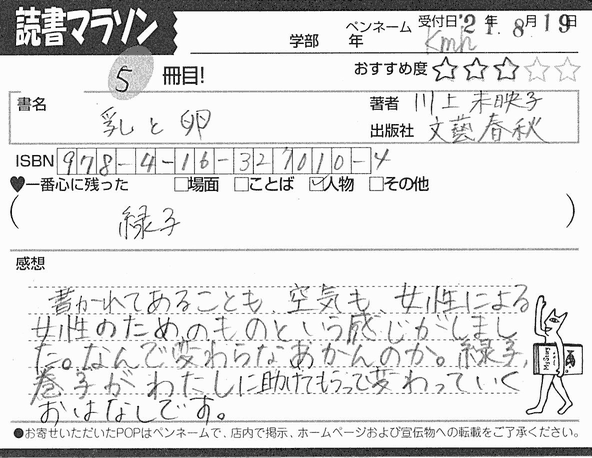 読書マラソン
学部 年 ペンネーム Kmh 受付日'21年8月19日
5 冊目! おすすめ度 ☆☆☆☆☆
書名 乳と卵 著者 川上未映子
出版社 文藝春秋
ISBN 978-4-16-327010-4
♥一番心に残った □場面 □ことば ☑人物 □その他
( 緑子 )
感想
書かれてあることも、空気も、女性による
女性のためのものという感じがしまし
た。なんで変わらなあかんのか。緑子、
巻子がわたしに助けてもらって変わっていく
おはなしです。
●お寄せいただいたPOPはペンネームで、店内で掲示、ホームページおよび宣伝物への転載をご了承ください。